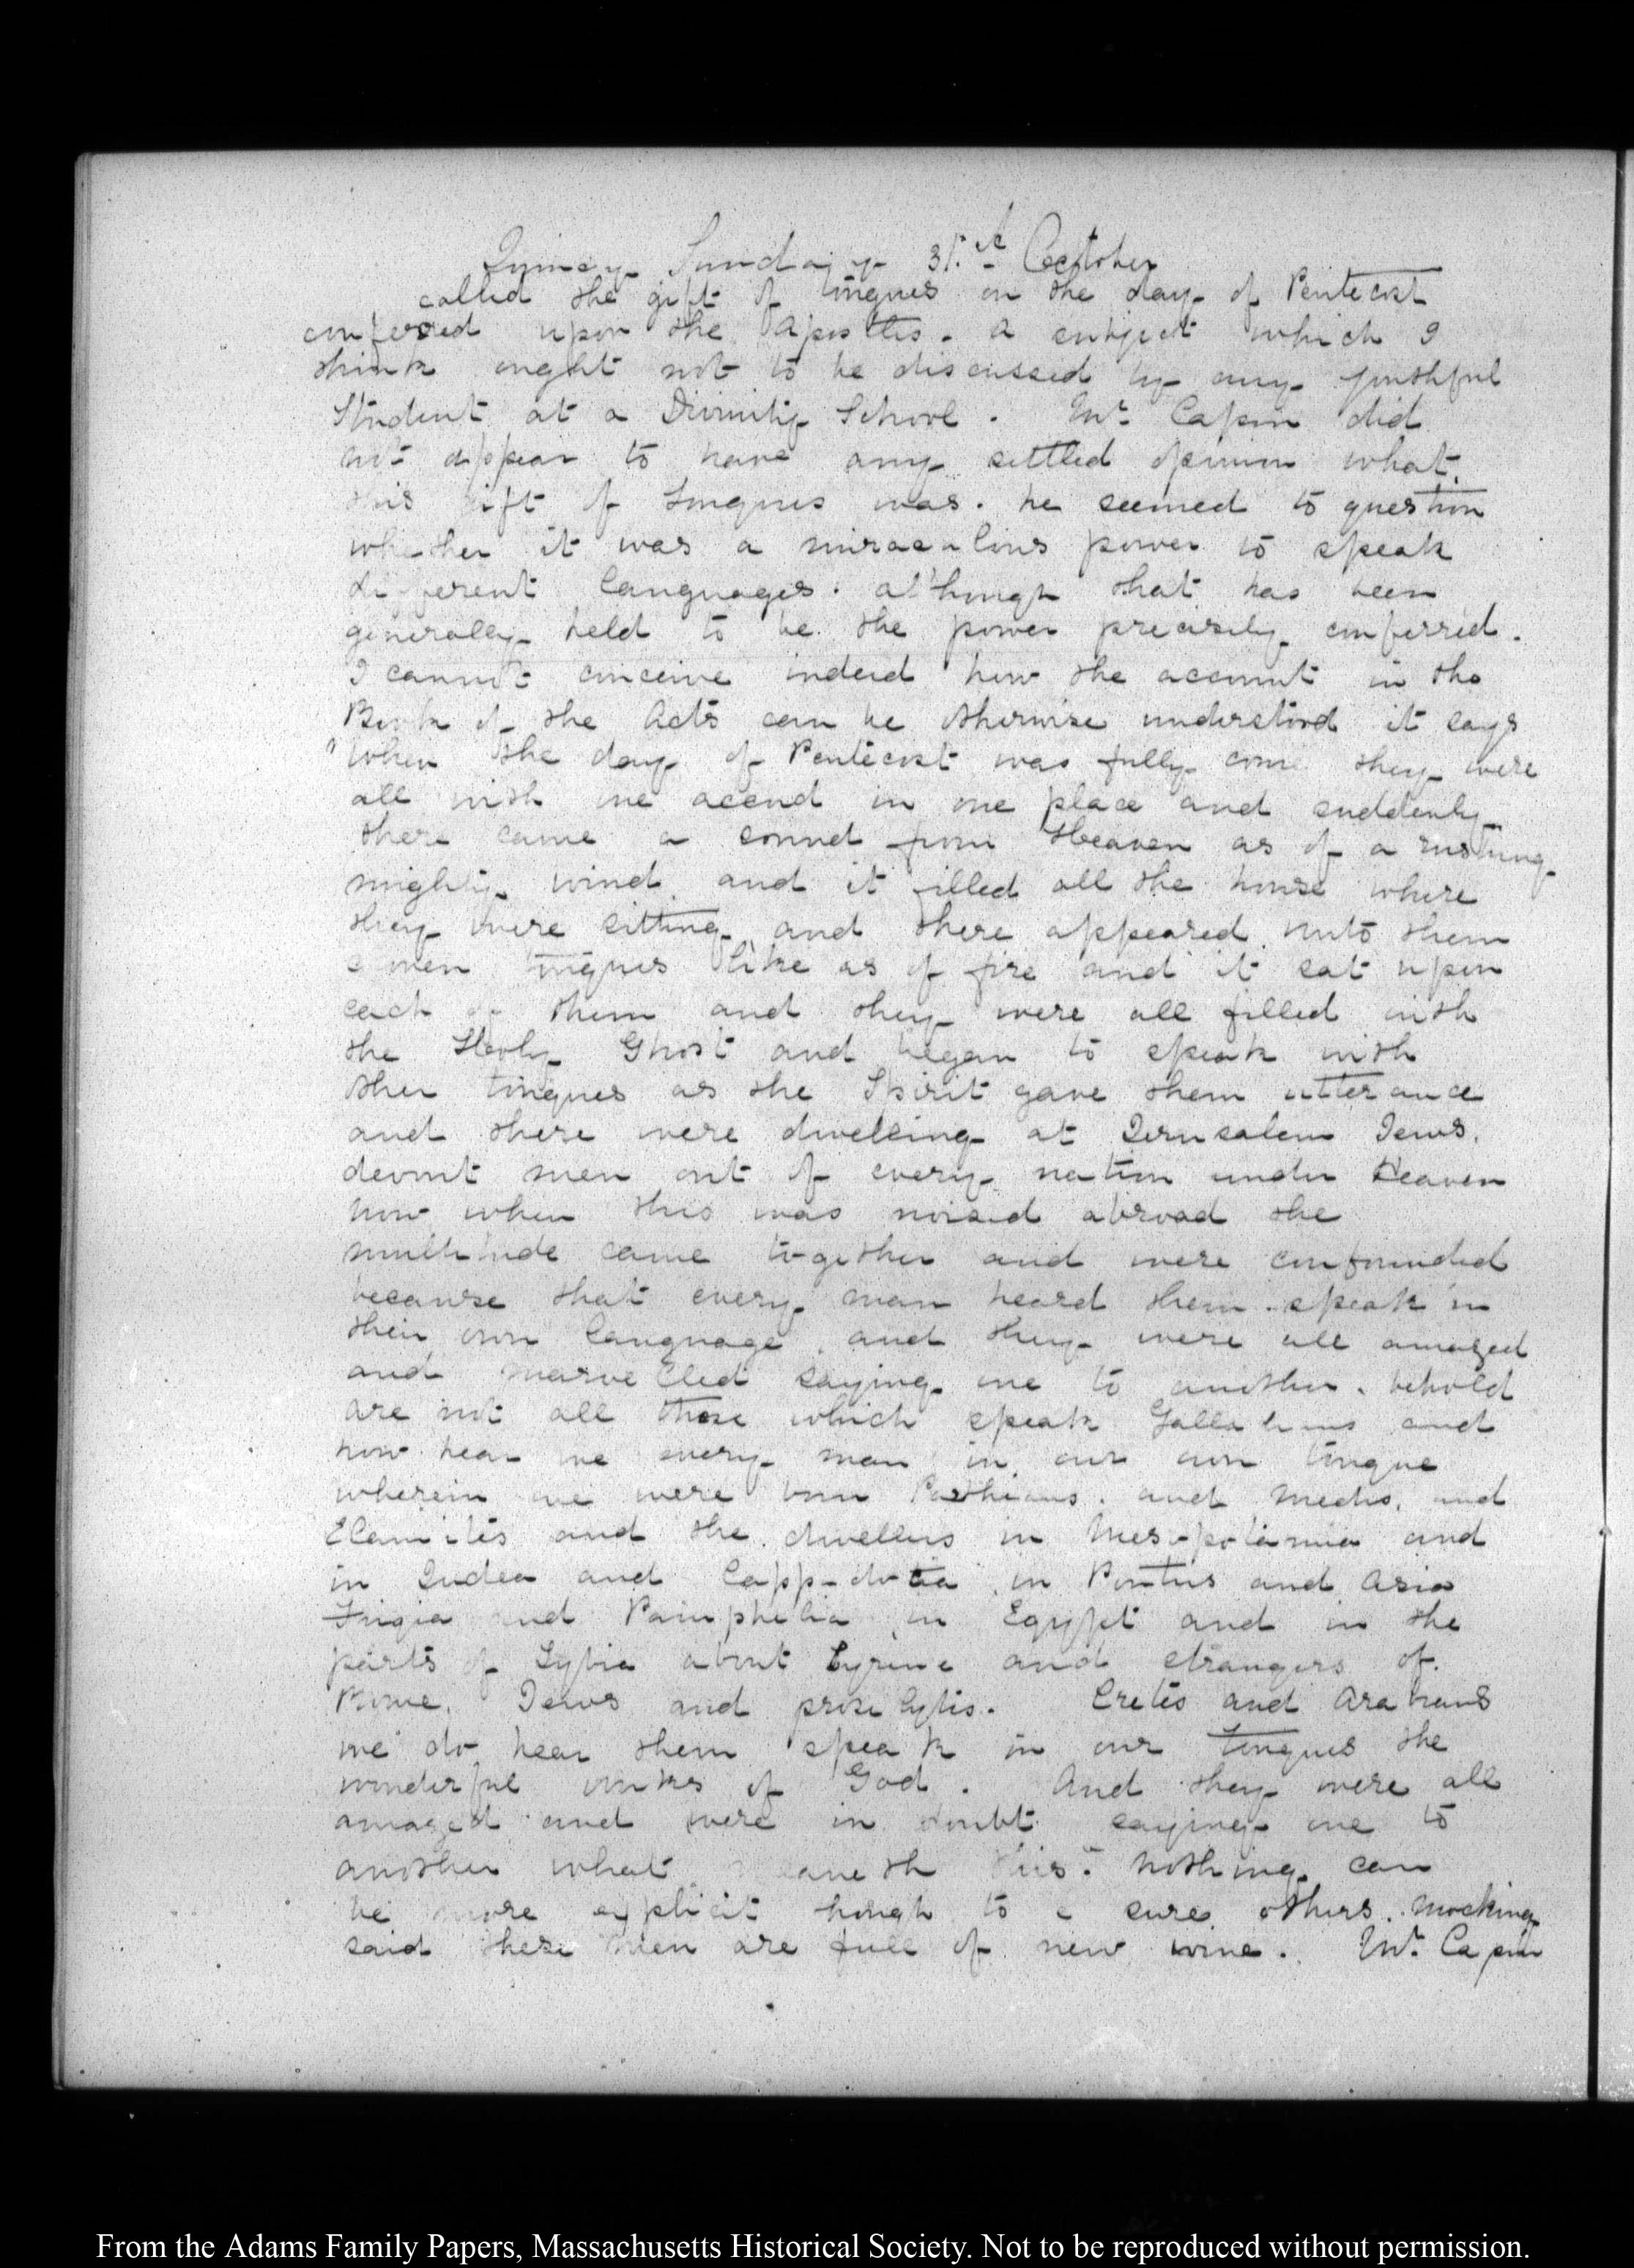 Quincy Sunday 31.st October
called the gift of tongues on the day of Pentecost
conferred upon the Apostles. a subject which I
think ought not to be discussed by any youthful
Student at a Divinity School. Mr. Capen did
not appear to have any settled opinion what
this gift of tongues was. he seemed to question
whether it was a miraculous power to speak
different languages. although that has been
generally held to be the power precisely conferred.
I cannot conceive indeed how the account in the
Book of the Acts can be otherwise understood it says
"When the day of Pentecost was fully come they were
all with one accord in one place and suddenly
there came a sound from Heaven as of a rushing
mighty wind and it filled all the house where
they were sitting and there appeared unto them
cloven tongues like as of fire and it sat upon
each of them and they were all filled with
the Holy Ghost and began to speak with
other tongues as the Spirit gave them utterance
and there were dwelling at Jerusalem Jews.
devout men out of every nation under Heaven
now when this was noised abroad the
multitude came together and were confounded
because that every man heard them speak in
their own language. and they were all amazed
and marvelled saying one to another. behold
are not all these which speak Gallaleans and
how hear we every man in our own tongue
wherein we were born Parthians. and Medes. and
Elamites and the dwellers in Mesopotamia and
in Judea and Cappodocia in Pontus and Asia
Frigia and Pamphelia in Egypt and in the
parts of Lybia about Cyrene and strangers of
Rome. Jews and proselytes. Cretes and Arabians
we do hear them speak in our tongues the
wonderful works of God. And they were all
amazed and were in doubt saying one to
another what meaneth this. Nothing can
be more explicit though to be sure others. mocking
said these men are full of new wine. Mr. Capen
From the Adams Family Papers, Massachusetts Historical Society. Not to be reproduced without permission.